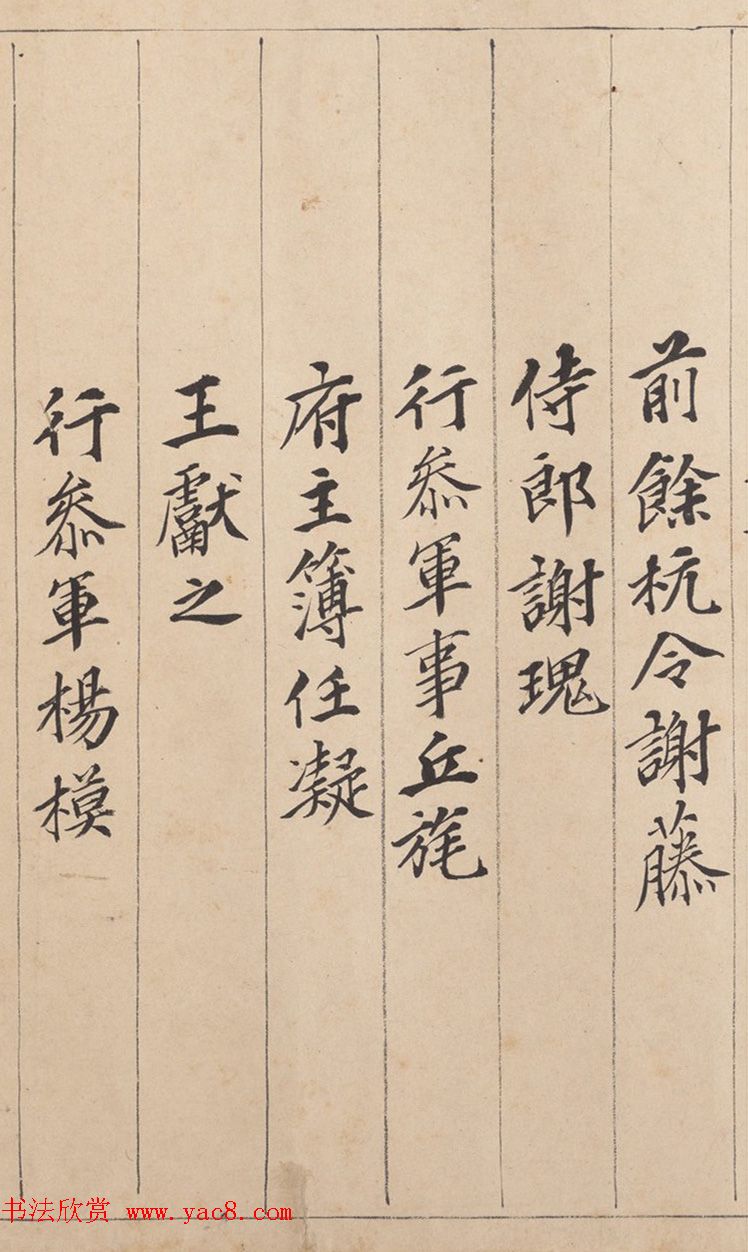 前餘杭令謝藤
侍郎謝瑰
行叅軍事丘旄
府主簿任凝
王獻之
行叅軍楊模
书法欣赏 www.yac8.com